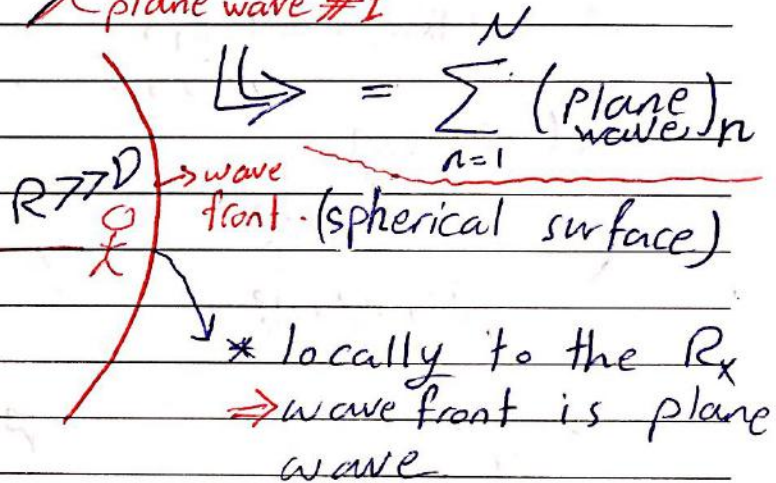 plane wave #1
= N ∑ n=1 (plane wave)n
R>>D
→wave front. (spherical surface)
* locally to the Rx
⇒wave front is plane
wave